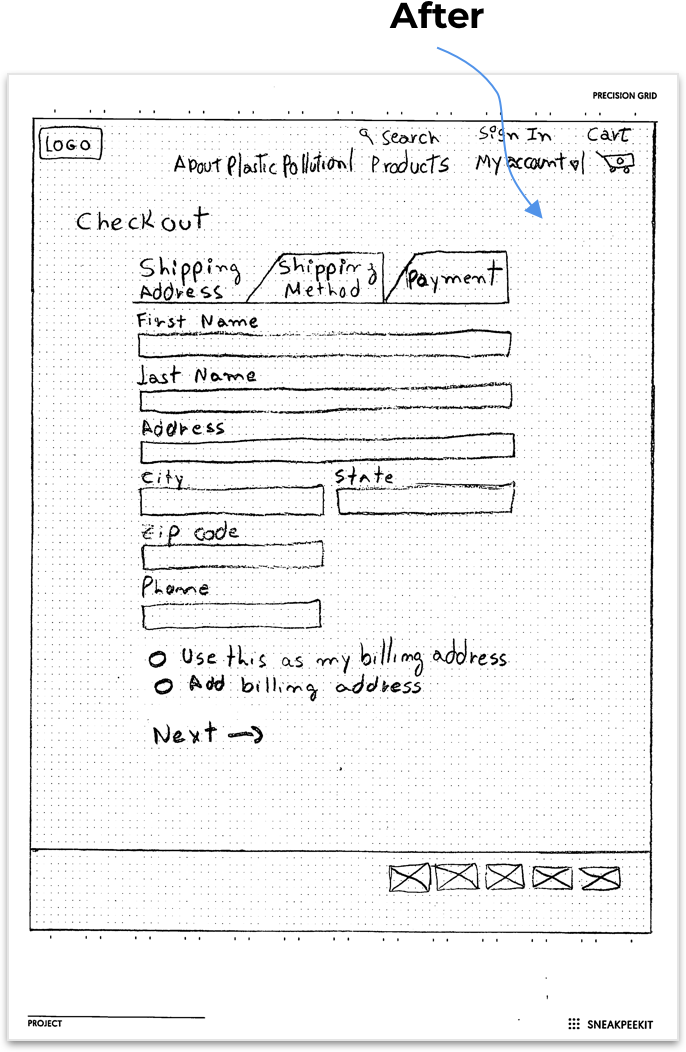 After
PRECISION GRID
LOGO
Search
Sign In
Cart
About Plastic Pollution
Products
My account
Checkout
Shipping
Address
Shipping
Method
Payment
First Name
Last Name
Address
City
State
Zip code
Phone
Use this as my billing address
Add billing address
Next →
PROJECT
SNEAKPEEKIT